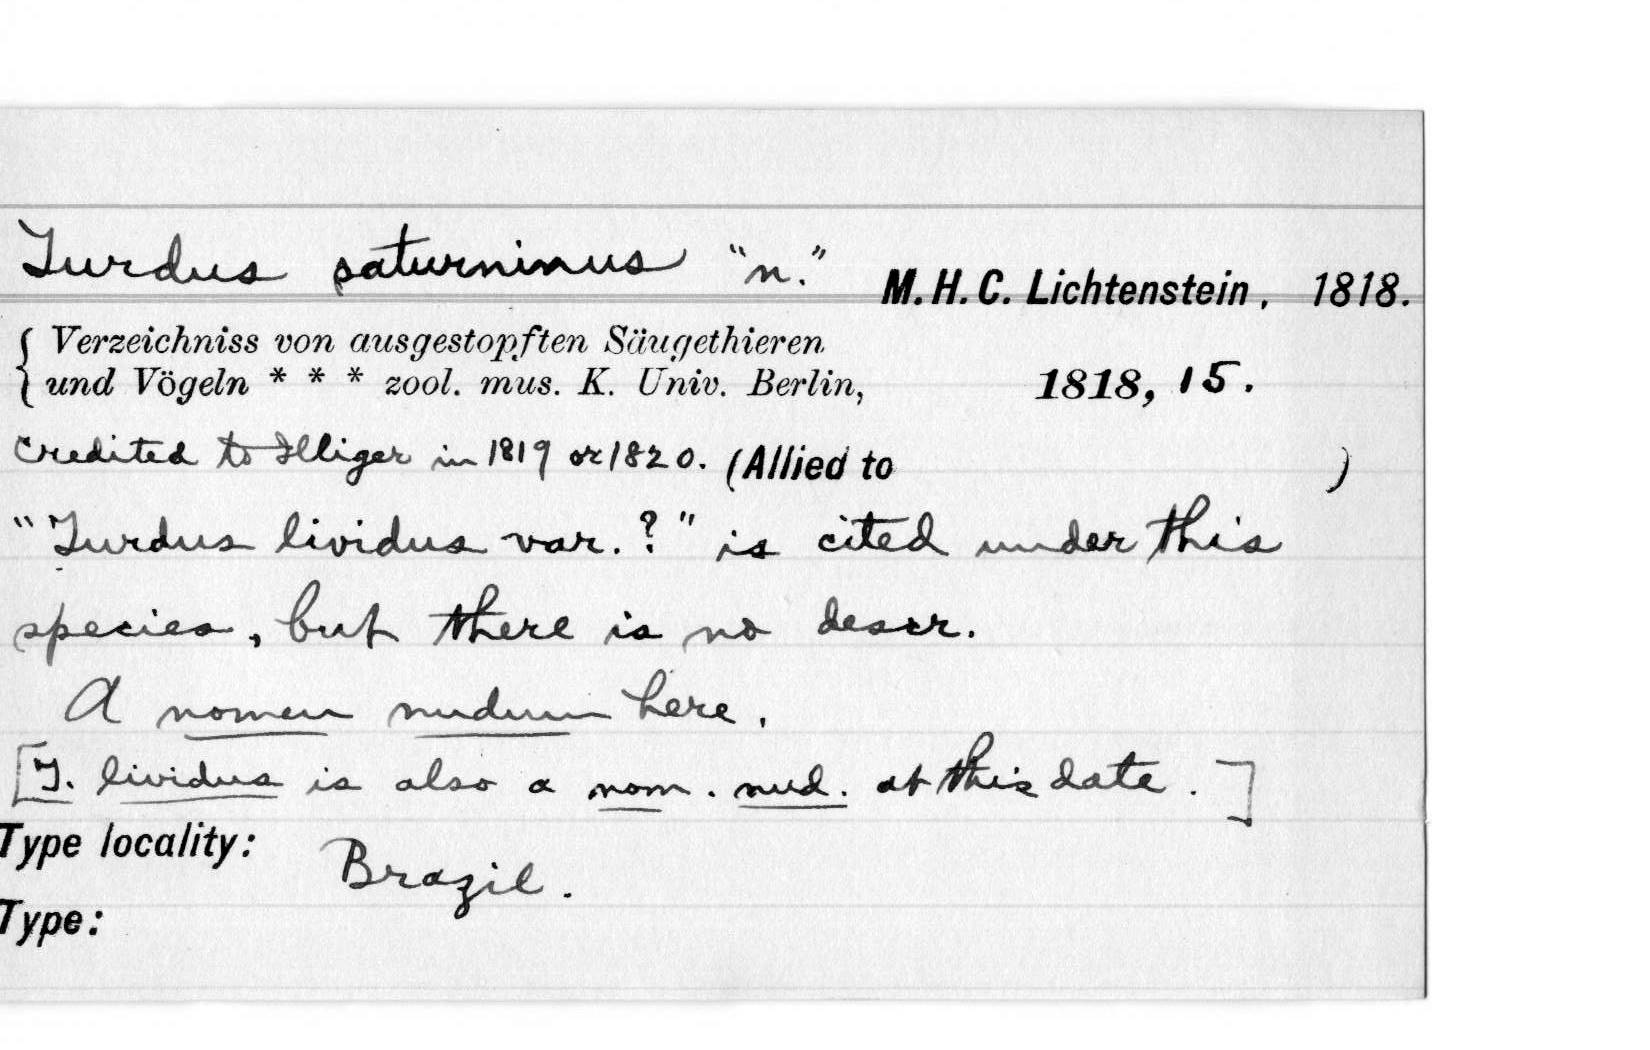 Turdus saturninus "n." M. H. C. Lichtenstein, 1818.
{ Verzeichniss von ausgestopften Säugethieren
{ und Vögeln * * * zool. mus. K. Univ. Berlin, 1818, 15.
Credited to Illiger in 1819 or 1820. (Allied to )
"Turdus lividus var. ?" is cited under this
species, but there is no descr.
A nomen nudum here.
[T. lividus is also a nom. nud. at this date.]
Type locality: Brazil.
Type: